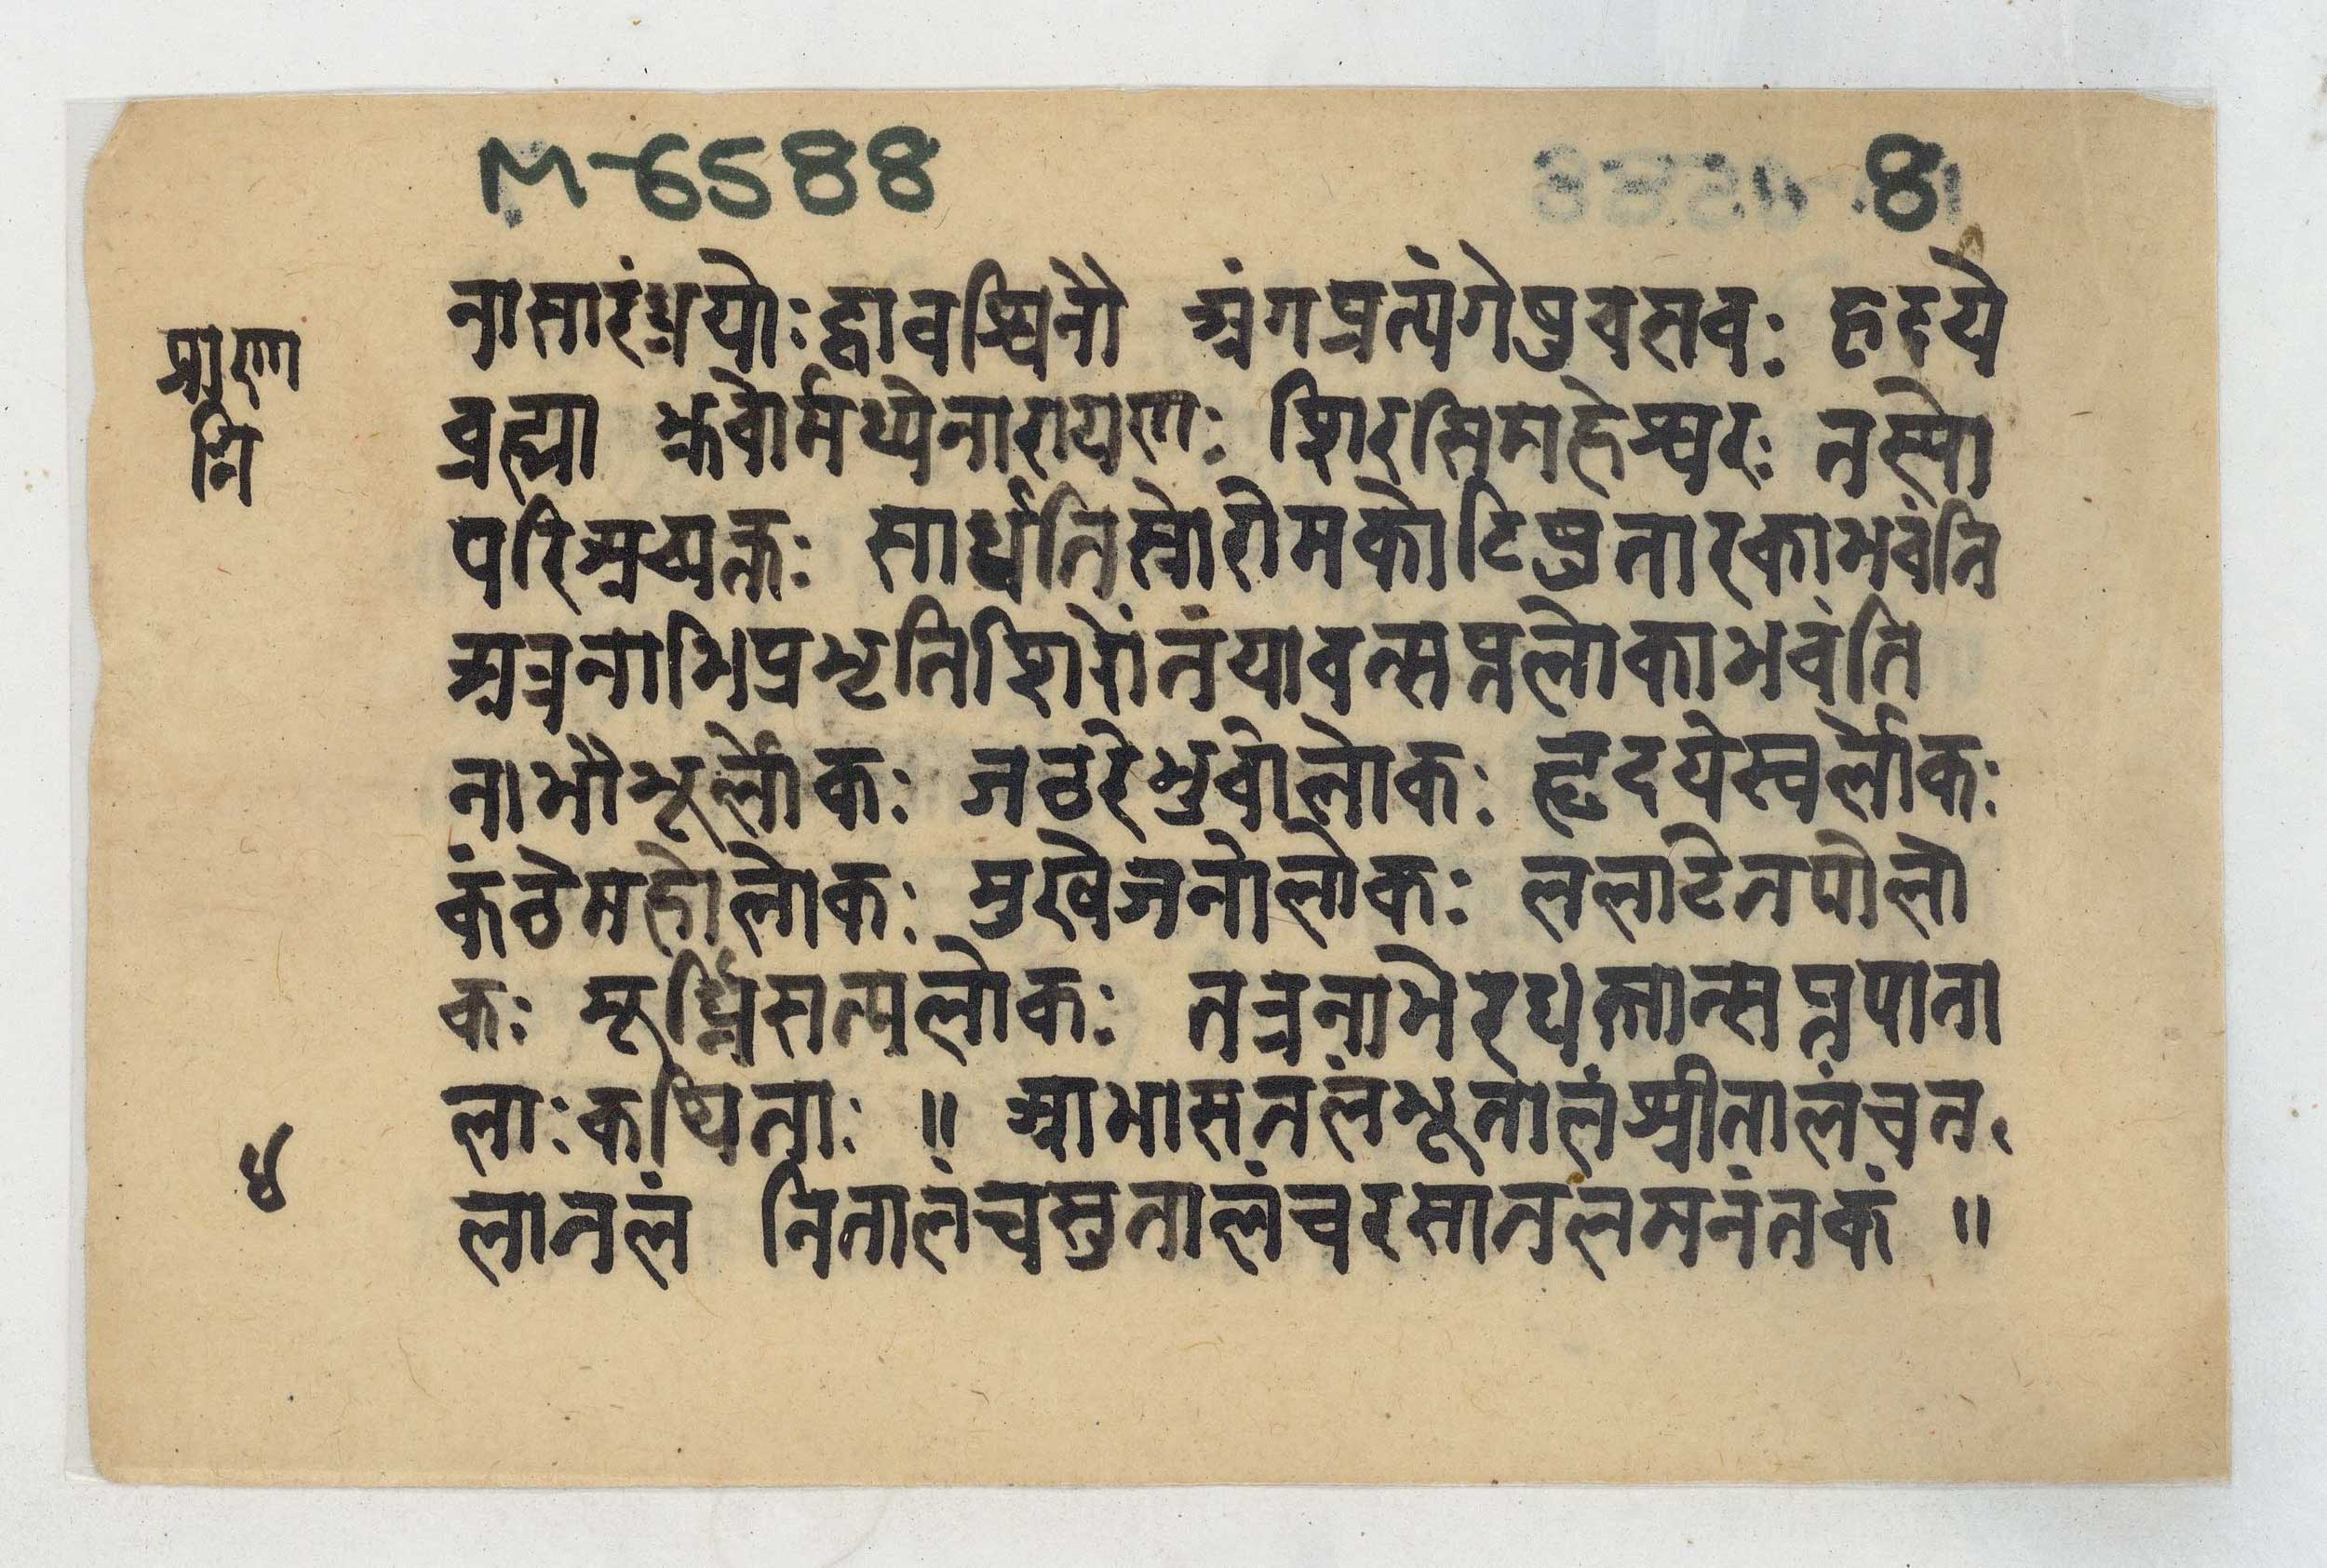 M-6588
8
नासारंध्रयोः द्वावश्विनौ अंगप्रत्यंगेषु वसवः हृदये
ब्रह्मा भ्रुवोर्मध्येनारायणः शिरसिमहेश्वरः तस्यो
परिअव्यक्तः सार्धतिस्रोरोमकोटिषुतारकाभवंति
अत्रनाभिप्रभृतिशिरोंतंयावत्सप्तलोकाभवंति
नाभौभूर्लोकः जठरेभुवोलोकः हृदयेस्वर्लोकः
कंठेमहोलोकः मुखेजनोलोकः ललाटेतपोलो
कः मूर्ध्निसत्यलोकः तत्रनाभेरधस्तात्सप्तपाता
लाः कथिताः ॥ आभासतलंभूतालंश्रीतालंचत
लातलं नितालंचसुतालंचरसातलमनंतकं ॥
प्राण
ग्नि
४